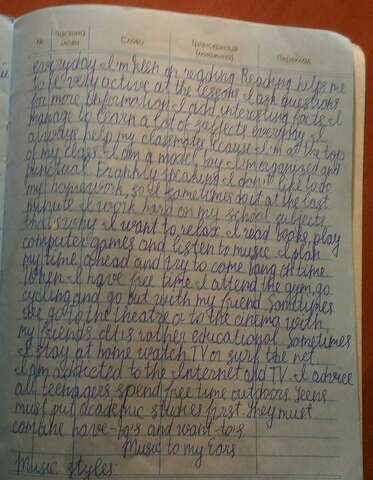 № Частина мови Слово Транскрипція (вимова) Переклад
everyday. I'm keen on reading. Reading helps me
to be very active at the lessons. I ask questions
for more information. I add interesting facts. I
manage to learn a lot of subjects everyday. I
always help my classmates because I'm at the top
of my class. I am a model boy. I'm organized and
punctual. Frankly speaking I don't like to do
my homework, so I sometimes do it at the last
minute. I work hard on my school subjects
that's why I want to relax. I read books, play
computer games and listen to music. I plan
my time ahead and try to come bang on time.
When I have free time I attend the gym, go
cycling and go out with my friend. Sometimes
we go to the theatre or to the cinema with
my friends. It is rather educational. Sometimes
I stay at home watch TV or surf the net.
I am addicted to the Internet and TV. I advice
all teenagers spend free time outdoors. Teens
must put academic studies first. They must
combine have-to's and want-to's.
Music to my Ears
Music styles